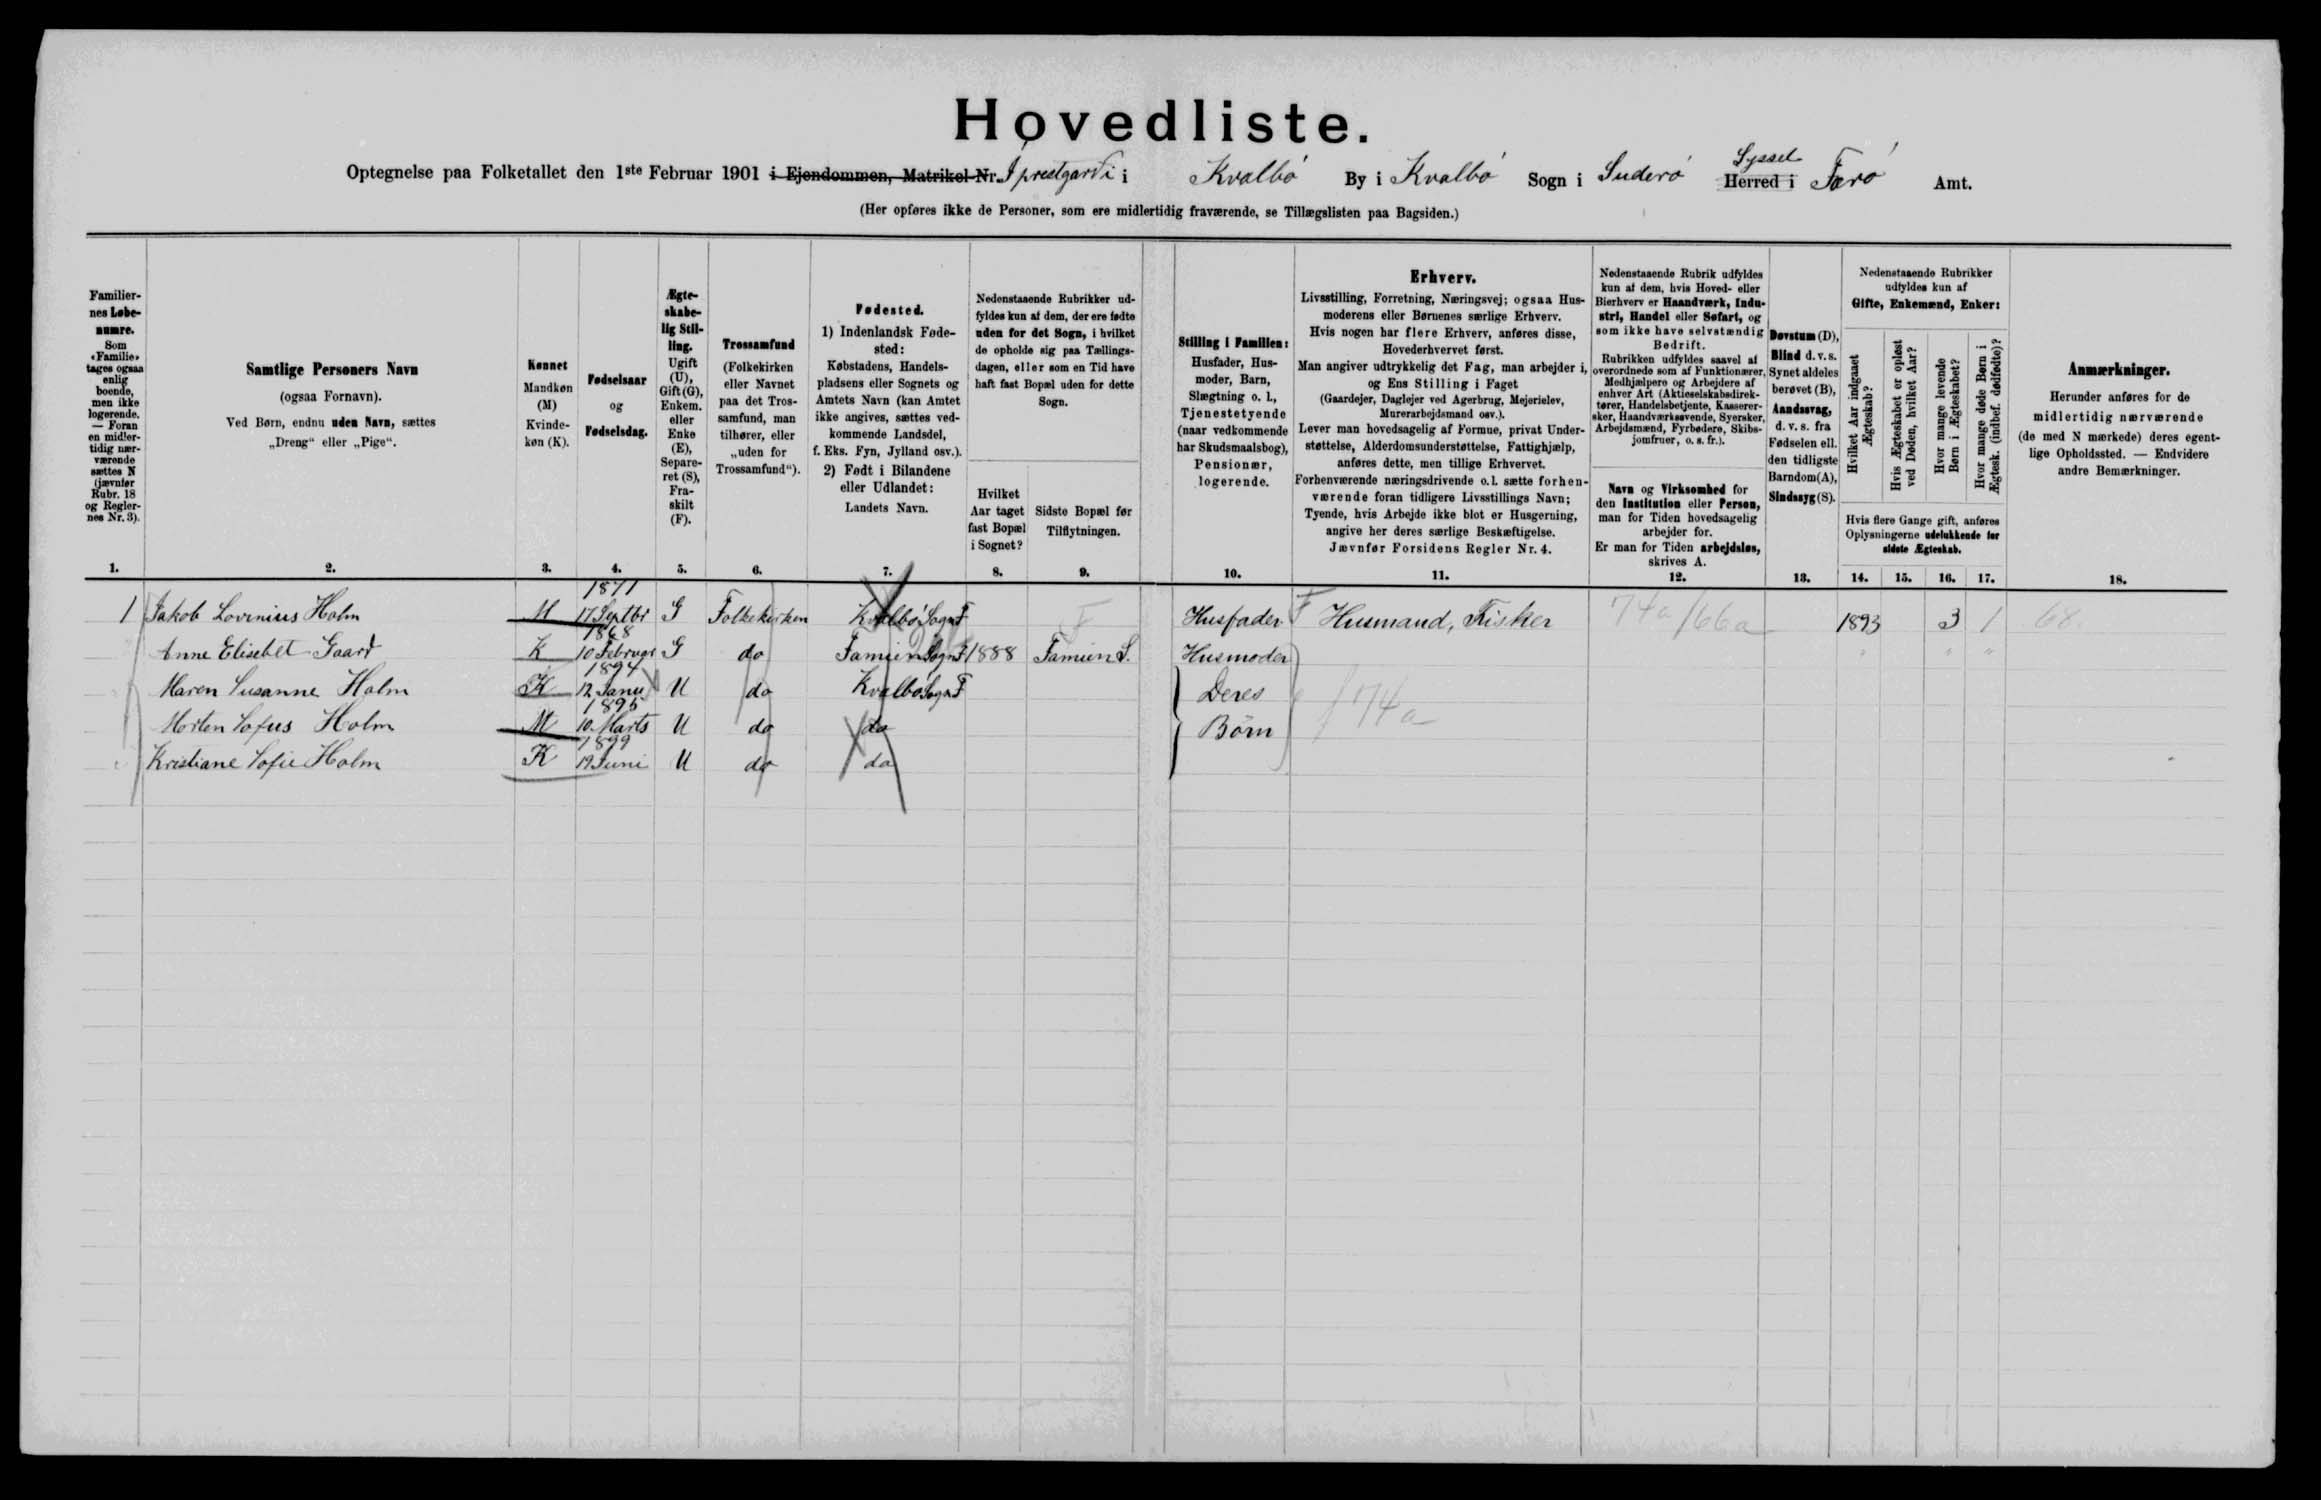 Hovedliste.
Optegnelse paa Folketallet den 1ste Februar 1901 i Ejendommen, Matrikel-Nr. Iprestgardi i Kvalbó By i Kvalbó Sogn i Suderó Syssel Herred i Færó Amt.
(Her opføres ikke de Personer, som ere midlertidig fraværende, se Tillægslisten paa Bagsiden.)
Familiernes Løbenumre.
Som «Familie» tages ogsaa enlig boende, men ikke logerende. — Foran en midlertidig nærværende sættes N (jævnfør Rubr. 18 og Reglernes Nr. 3).
Samtlige Personers Navn
(ogsaa Fornavn).
Ved Børn, endnu uden Navn, sættes
„Dreng“ eller „Pige“.
Kønnet
Mandkøn (M)
Kvindekøn (K).
Fødselsaar
og
Fødselsdag.
Ægteskabelig Stilling.
Ugift (U), Gift (G), Enkem. eller Enke (E), Separeret (S), Fraskilt (F).
Trossamfund
(Folkekirken eller Navnet paa det Trossamfund, man tilhører, eller „uden for Trossamfund“).
Fødested.
1) Indenlandsk Fødested:
Købstadens, Handelspladsens eller Sognets og Amtets Navn (kan Amtet ikke angives, sættes vedkommende Landsdel, f. Eks. Fyn, Jylland osv.).
2) Født i Bilandene eller Udlandet:
Landets Navn.
Nedenstaaende Rubrikker udfyldes kun af dem, der ere fødte uden for det Sogn, i hvilket de opholde sig paa Tællingsdagen, eller som en Tid have haft fast Bopæl uden for dette Sogn.
Hvilket Aar taget fast Bopæl i Sognet?
Sidste Bopæl før Tilflytningen.
Stilling i Familien:
Husfader, Husmoder, Barn, Slægtning o. l., Tjenestetyende (naar vedkommende har Skudsmaalsbog), Pensionær, logerende.
Erhverv.
Livsstilling, Forretning, Næringsvej; ogsaa Husmoderens eller Børnenes særlige Erhverv.
Hvis nogen har flere Erhverv, anføres disse, Hovederhvervet først.
Man angiver udtrykkelig det Fag, man arbejder i, og Ens Stilling i Faget
(Gaardejer, Daglejer ved Agerbrug, Mejerielev, Murerarbejdsmand osv.).
Lever man hovedsagelig af Formue, privat Understøttelse, Alderdomsunderstøttelse, Fattighjælp, anføres dette, men tillige Erhvervet.
Forhenværende næringsdrivende o. l. sætte forhenværende foran tidligere Livsstillings Navn;
Tyende, hvis Arbejde ikke blot er Husgerning, angive her deres særlige Beskæftigelse.
Jævnfør Forsidens Regler Nr. 4.
Nedenstaaende Rubrik udfyldes kun af dem, hvis Hoved- eller Bierhverv er Haandværk, Industri, Handel eller Søfart, og som ikke have selvstændig Bedrift.
Rubrikken udfyldes saavel af overordnede som af Funktionærer, Medhjælpere og Arbejdere af enhver Art (Aktieselskabsdirektører, Handelsbetjente, Kasserersker, Haandværkssvende, Syersker, Arbejdsmænd, Fyrbødere, Skibsjomfruer, o. s. fr.).
Navn og Virksomhed for den Institution eller Person, man for Tiden hovedsagelig arbejder for.
Er man for Tiden arbejdsløs, skrives A.
Døvstum (D), Blind d. v. s. Synet aldeles berøvet (B), Aandssvag, d. v. s. fra Fødselen ell. den tidligste Barndom (A), Sindssyg (S).
Nedenstaaende Rubrikker udfyldes kun af
Gifte, Enkemænd, Enker:
Hvilket Aar indgaaet Ægteskab?
Hvis Ægteskabet er opløst ved Døden, hvilket Aar?
Hvor mange levende Børn i Ægteskabet?
Hvor mange døde Børn i Ægtesk. (indbef. dødfødte)?
Hvis flere Gange gift, anføres Oplysningerne udelukkende for sidste Ægteskab.
Anmærkninger.
Herunder anføres for de midlertidig nærværende (de med N mærkede) deres egentlige Opholdssted. — Endvidere andre Bemærkninger.
1. 2. 3. 4. 5. 6. 7. 8. 9. 10. 11. 12. 13. 14. 15. 16. 17. 18.
1 Jakob Lovinius Holm M 1871 17 Septbr G Folkekirken Kvalbó Sogn F F Husfader F Husmand, Fisker 74a/66a 1893 3 1 68.
Anne Elisebet Gaard K 1868 10 Februar G do Famien Sogn F 1888 Famien S. Husmoder " " "
Maren Susanne Holm K 1894 12 Janu U do Kvalbó Sogn F Deres 74a
Morten Sofus Holm M 1895 10 Marts U do do Børn
Kristiane Sofie Holm K 1899 19 Juni U do do